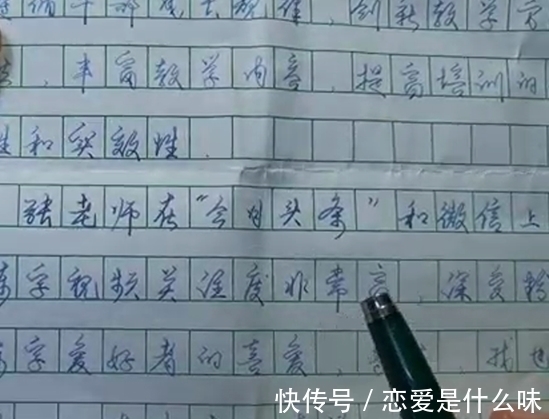 干部成长规律，创新教学方
，丰富教学内容，提高培训的
性和实效性．
张老师在“今日头条”和微信上
字视频关注度非常高，深受粉
字爱好者的喜爱，我也
快传号 / 恋爱是什么味